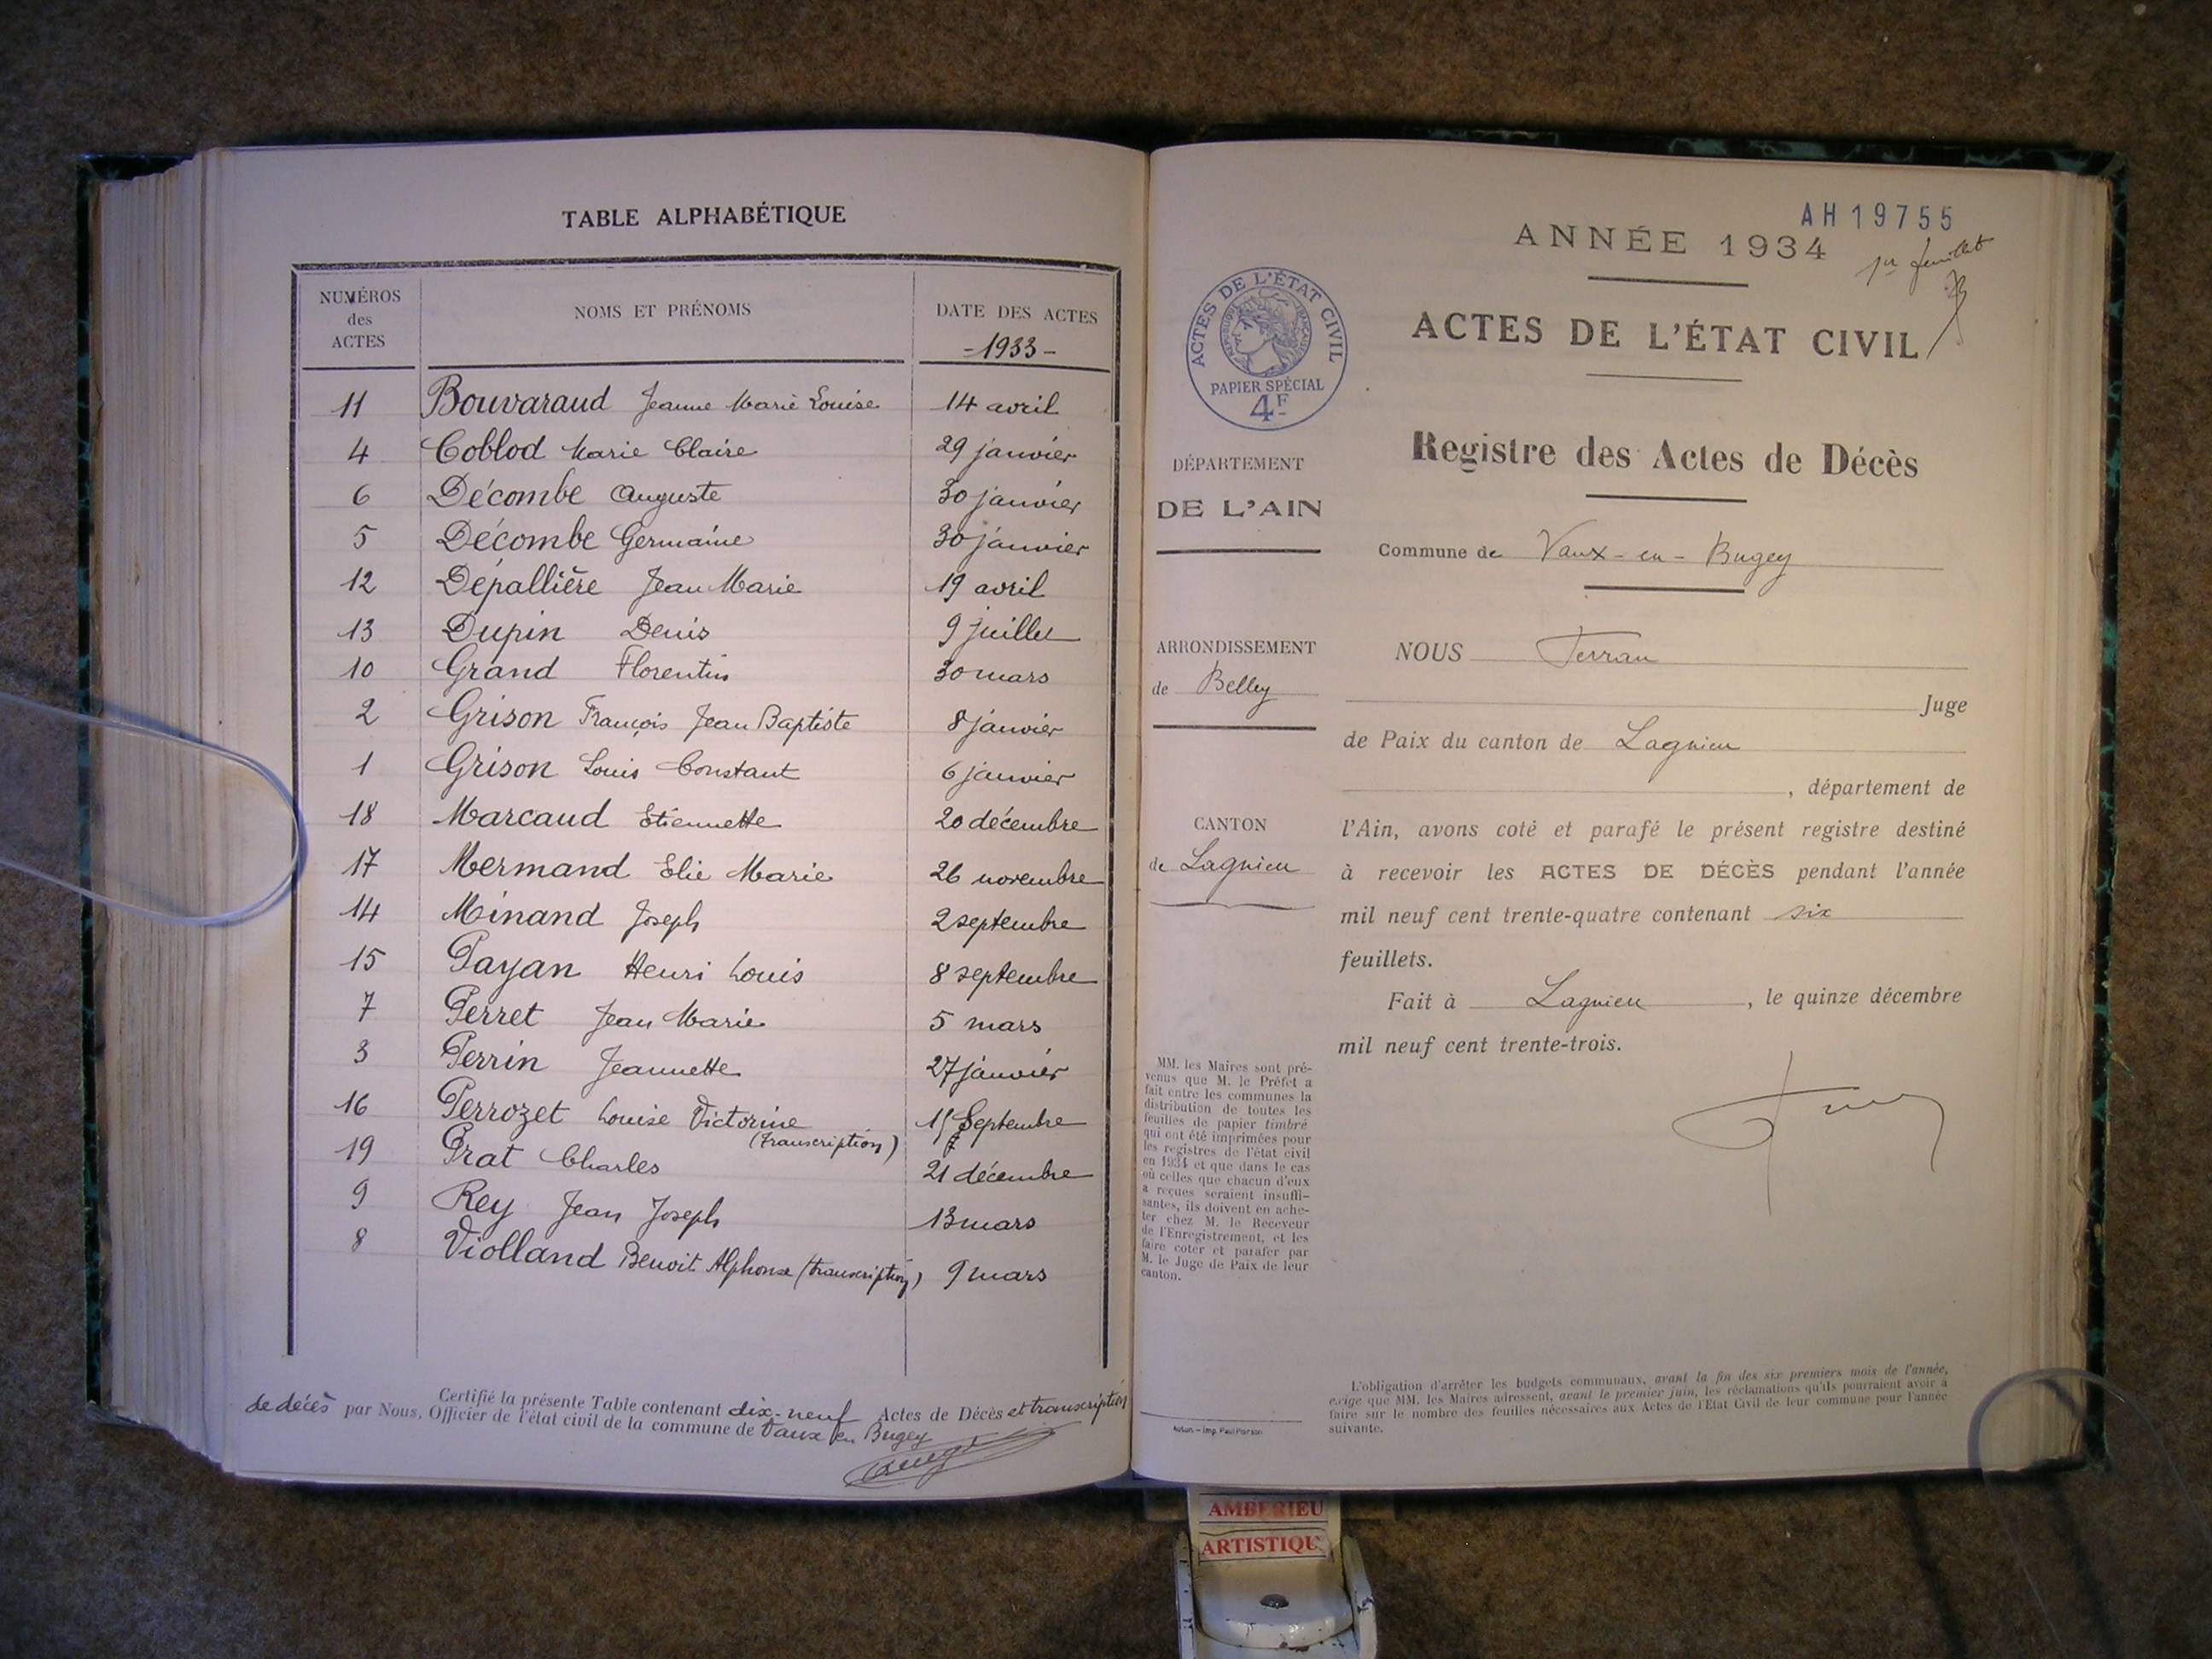 TABLE ALPHABÉTIQUE
NUMÉROS des ACTES NOMS ET PRÉNOMS DATE DES ACTES
-1933-
11 Bouvaraud Jeanne Marie Louise 14 avril
4 Coblod Marie Claire 29 janvier
6 Décombe Auguste 30 janvier
5 Décombe Germaine 30 janvier
12 Dépallière Jean Marie 19 avril
13 Dupin Denis 9 juillet
10 Grand Florentin 30 mars
2 Grison François Jean Baptiste 8 janvier
1 Grison Louis Constant 6 janvier
18 Marcaud Etiennette 20 décembre
17 Mermand Elie Marie 26 novembre
14 Minand Joseph 2 septembre
15 Payan Henri Louis 8 septembre
7 Perret Jean Marie 5 mars
3 Perrin Jeannette 27 janvier
16 Perrozet Louise Victorine 15 Septembre
(transcription)
19 Prat Charles 21 décembre
9 Rey Jean Joseph 13 mars
8 Violland Benoit Alphonse (transcription) 9 mars
Certifié la présente Table contenant dix-neuf Actes de Décès et transcription
de décès par Nous, Officier de l'état civil de la commune de Vaux en Bugey
AH19755
ANNÉE 1934
1er feuillet
ACTES DE L'ÉTAT CIVIL
PAPIER SPÉCIAL
4F
ACTES DE L'ÉTAT CIVIL
Registre des Actes de Décès
DÉPARTEMENT
DE L'AIN
Commune de Vaux-en-Bugey
ARRONDISSEMENT
de Belley
CANTON
de Lagnieu
NOUS Ferran
Juge
de Paix du canton de Lagnieu
, département de
l'Ain, avons coté et parafé le présent registre destiné
à recevoir les ACTES DE DÉCÈS pendant l'année
mil neuf cent trente-quatre contenant six
feuillets.
Fait à Lagnieu, le quinze décembre
mil neuf cent trente-trois.
MM. les Maires sont pré-
venus que M. le Préfet a
fait entre les communes la
distribution de toutes les
feuilles de papier timbré
qui ont été imprimées pour
les registres de l'état civil
en 1934 et que dans le cas
où celles que chacun d'eux
a reçues seraient insuffi-
santes, ils doivent en ache-
ter chez M. le Receveur
de l'Enregistrement, et les
faire coter et parafer par
M. le Juge de Paix de leur
canton.
Autun - Imp. Paul Pierson
L'obligation d'arrêter les budgets communaux, avant la fin des six premiers mois de l'année,
exige que MM. les Maires adressent, avant le premier juin, les réclamations qu'ils pourraient avoir à
faire sur le nombre des feuilles nécessaires aux Actes de l'Etat Civil de leur commune pour l'année
suivante.
AMBERIEU
ARTISTIQU